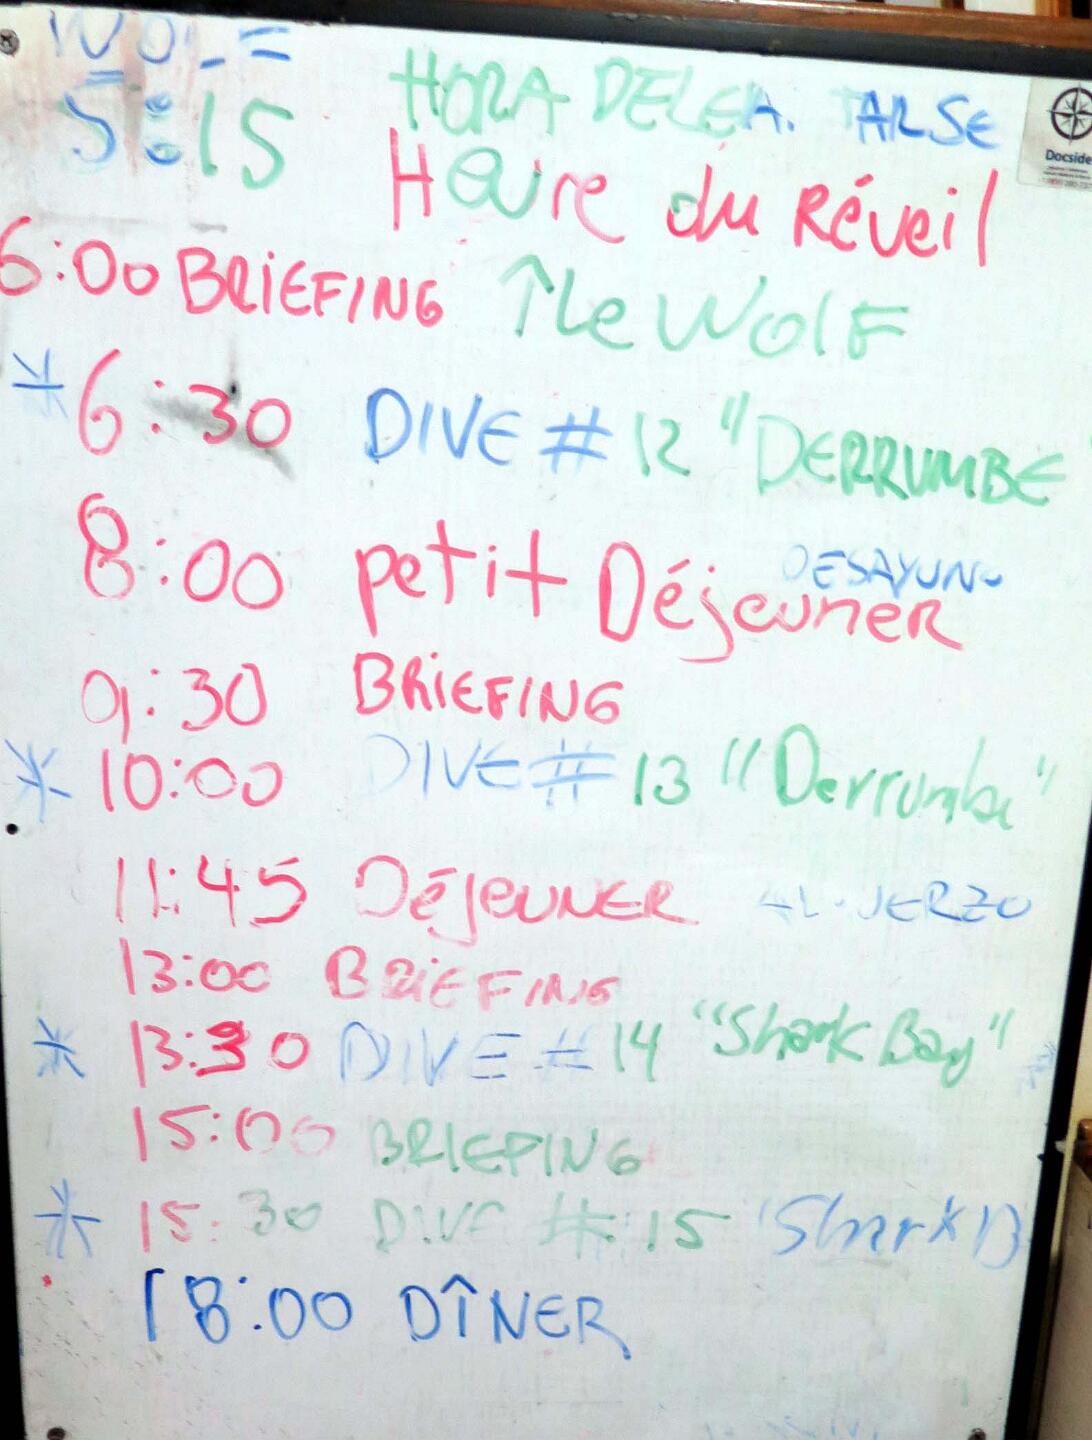 5:15 HORA DELEA. TARSE
Heure du Réveil
6:00 BRIEFING Île WOLF
* 6:30 DIVE # 12 "DERRUMBE
8:00 petit Déjeuner DESAYUNO
9:30 BRIEFING
* 10:00 DIVE # 13 "Derrumbe"
11:45 DéjeuNER AL.JERZO
13:00 BRIEFING
* 13:30 DIVE # 14 "Shark Bay"
15:00 BRIEFING
* 15:30 DIVE # 15 'Shark B
18:00 DÎNER
Docside